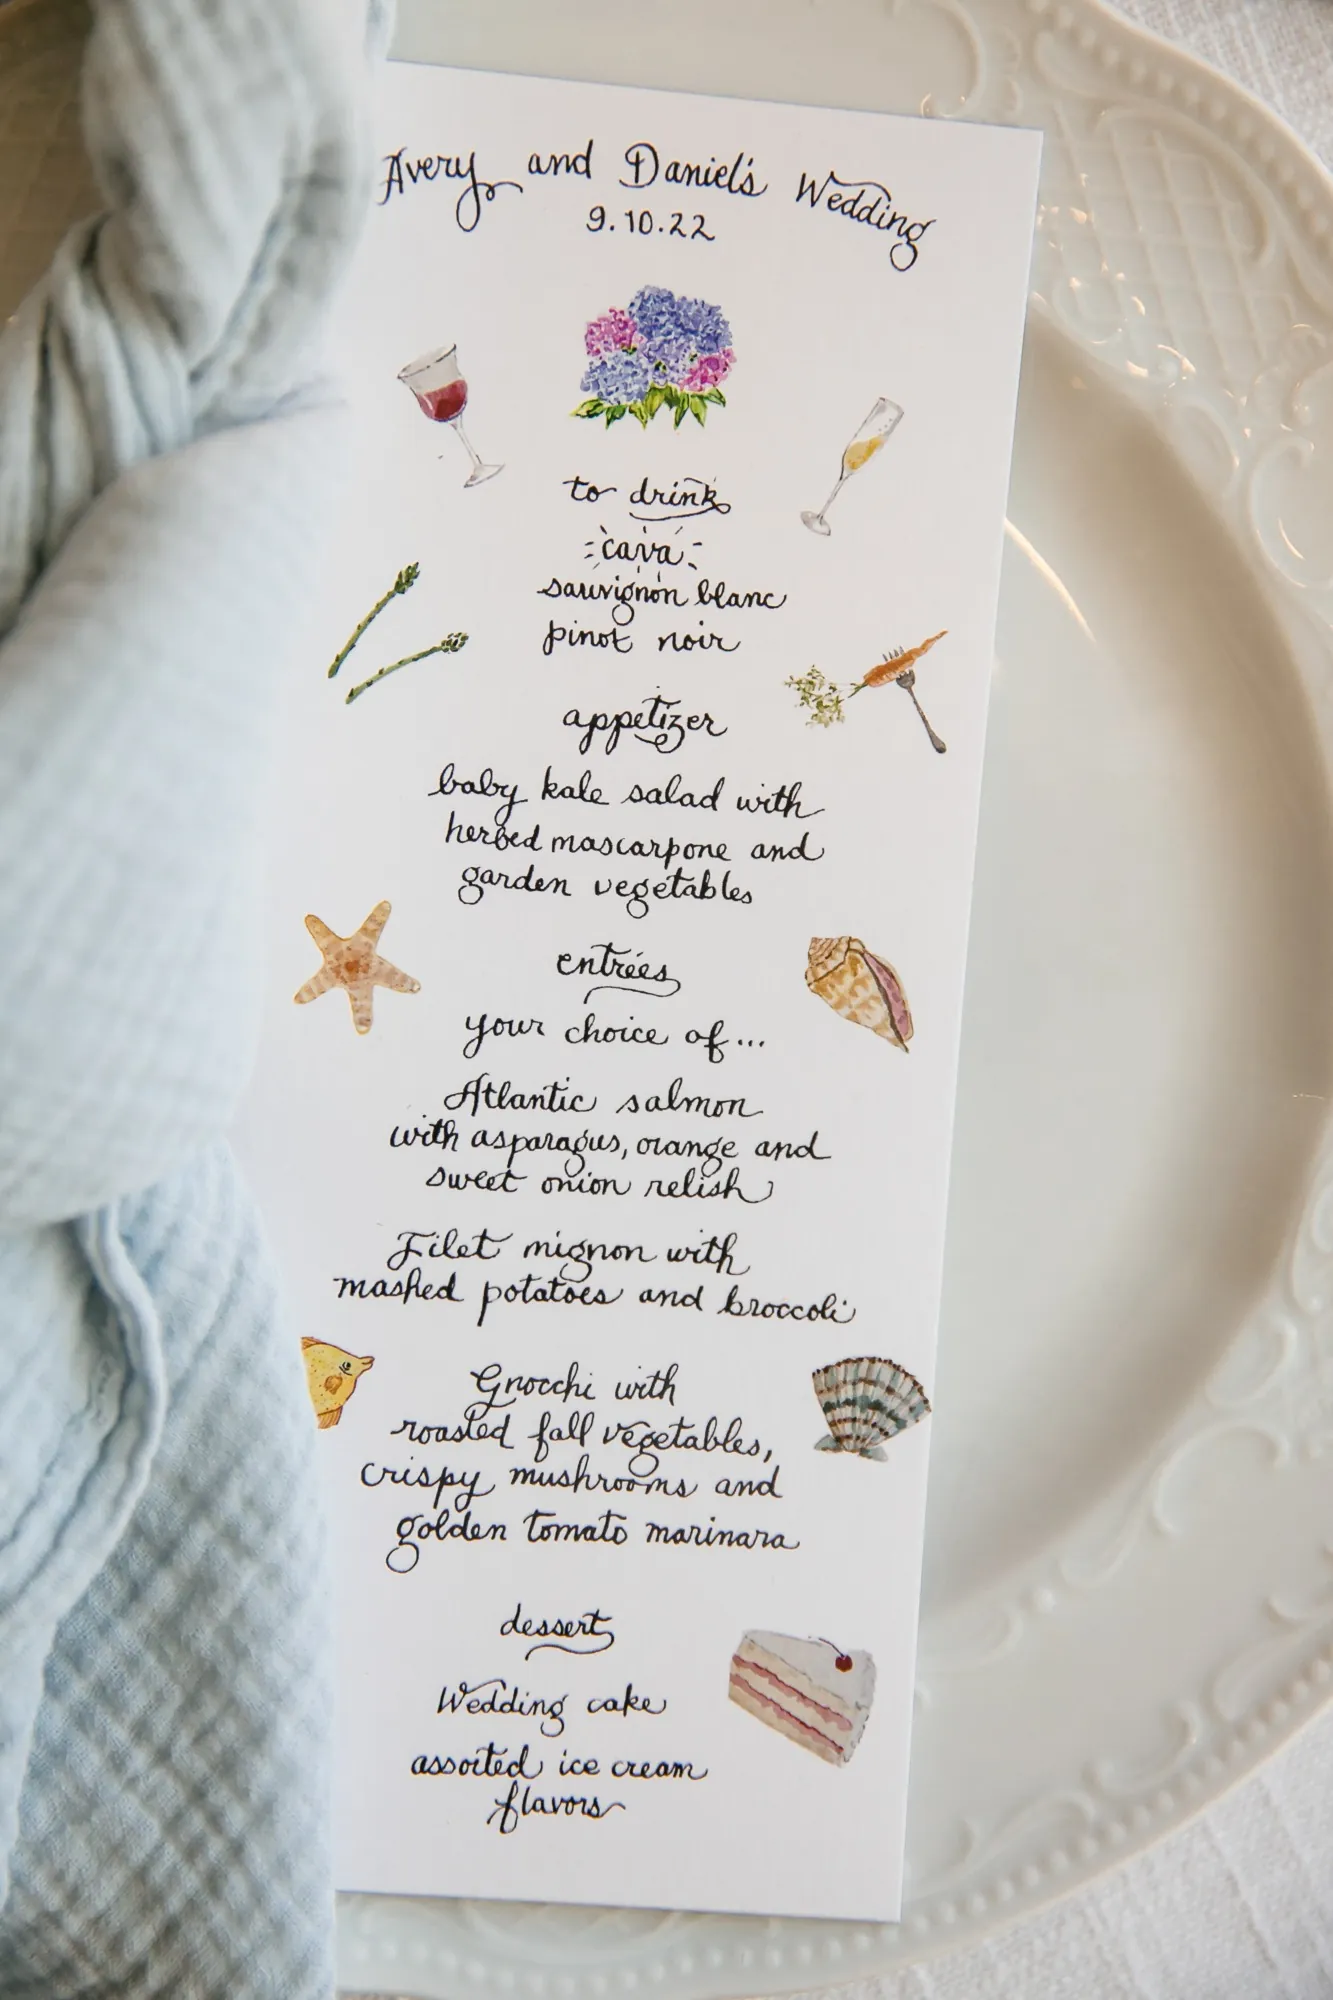 Avery and Daniel's Wedding
9.10.22
to drink
cava
sauvignon blanc
pinot noir
appetizer
baby kale salad with
herbed mascarpone and
garden vegetables
entrées
your choice of...
Atlantic salmon
with asparagus, orange and
sweet onion relish
Filet mignon with
mashed potatoes and broccoli
Gnocchi with
roasted fall vegetables,
crispy mushrooms and
golden tomato marinara
dessert
Wedding cake
assorted ice cream
flavors